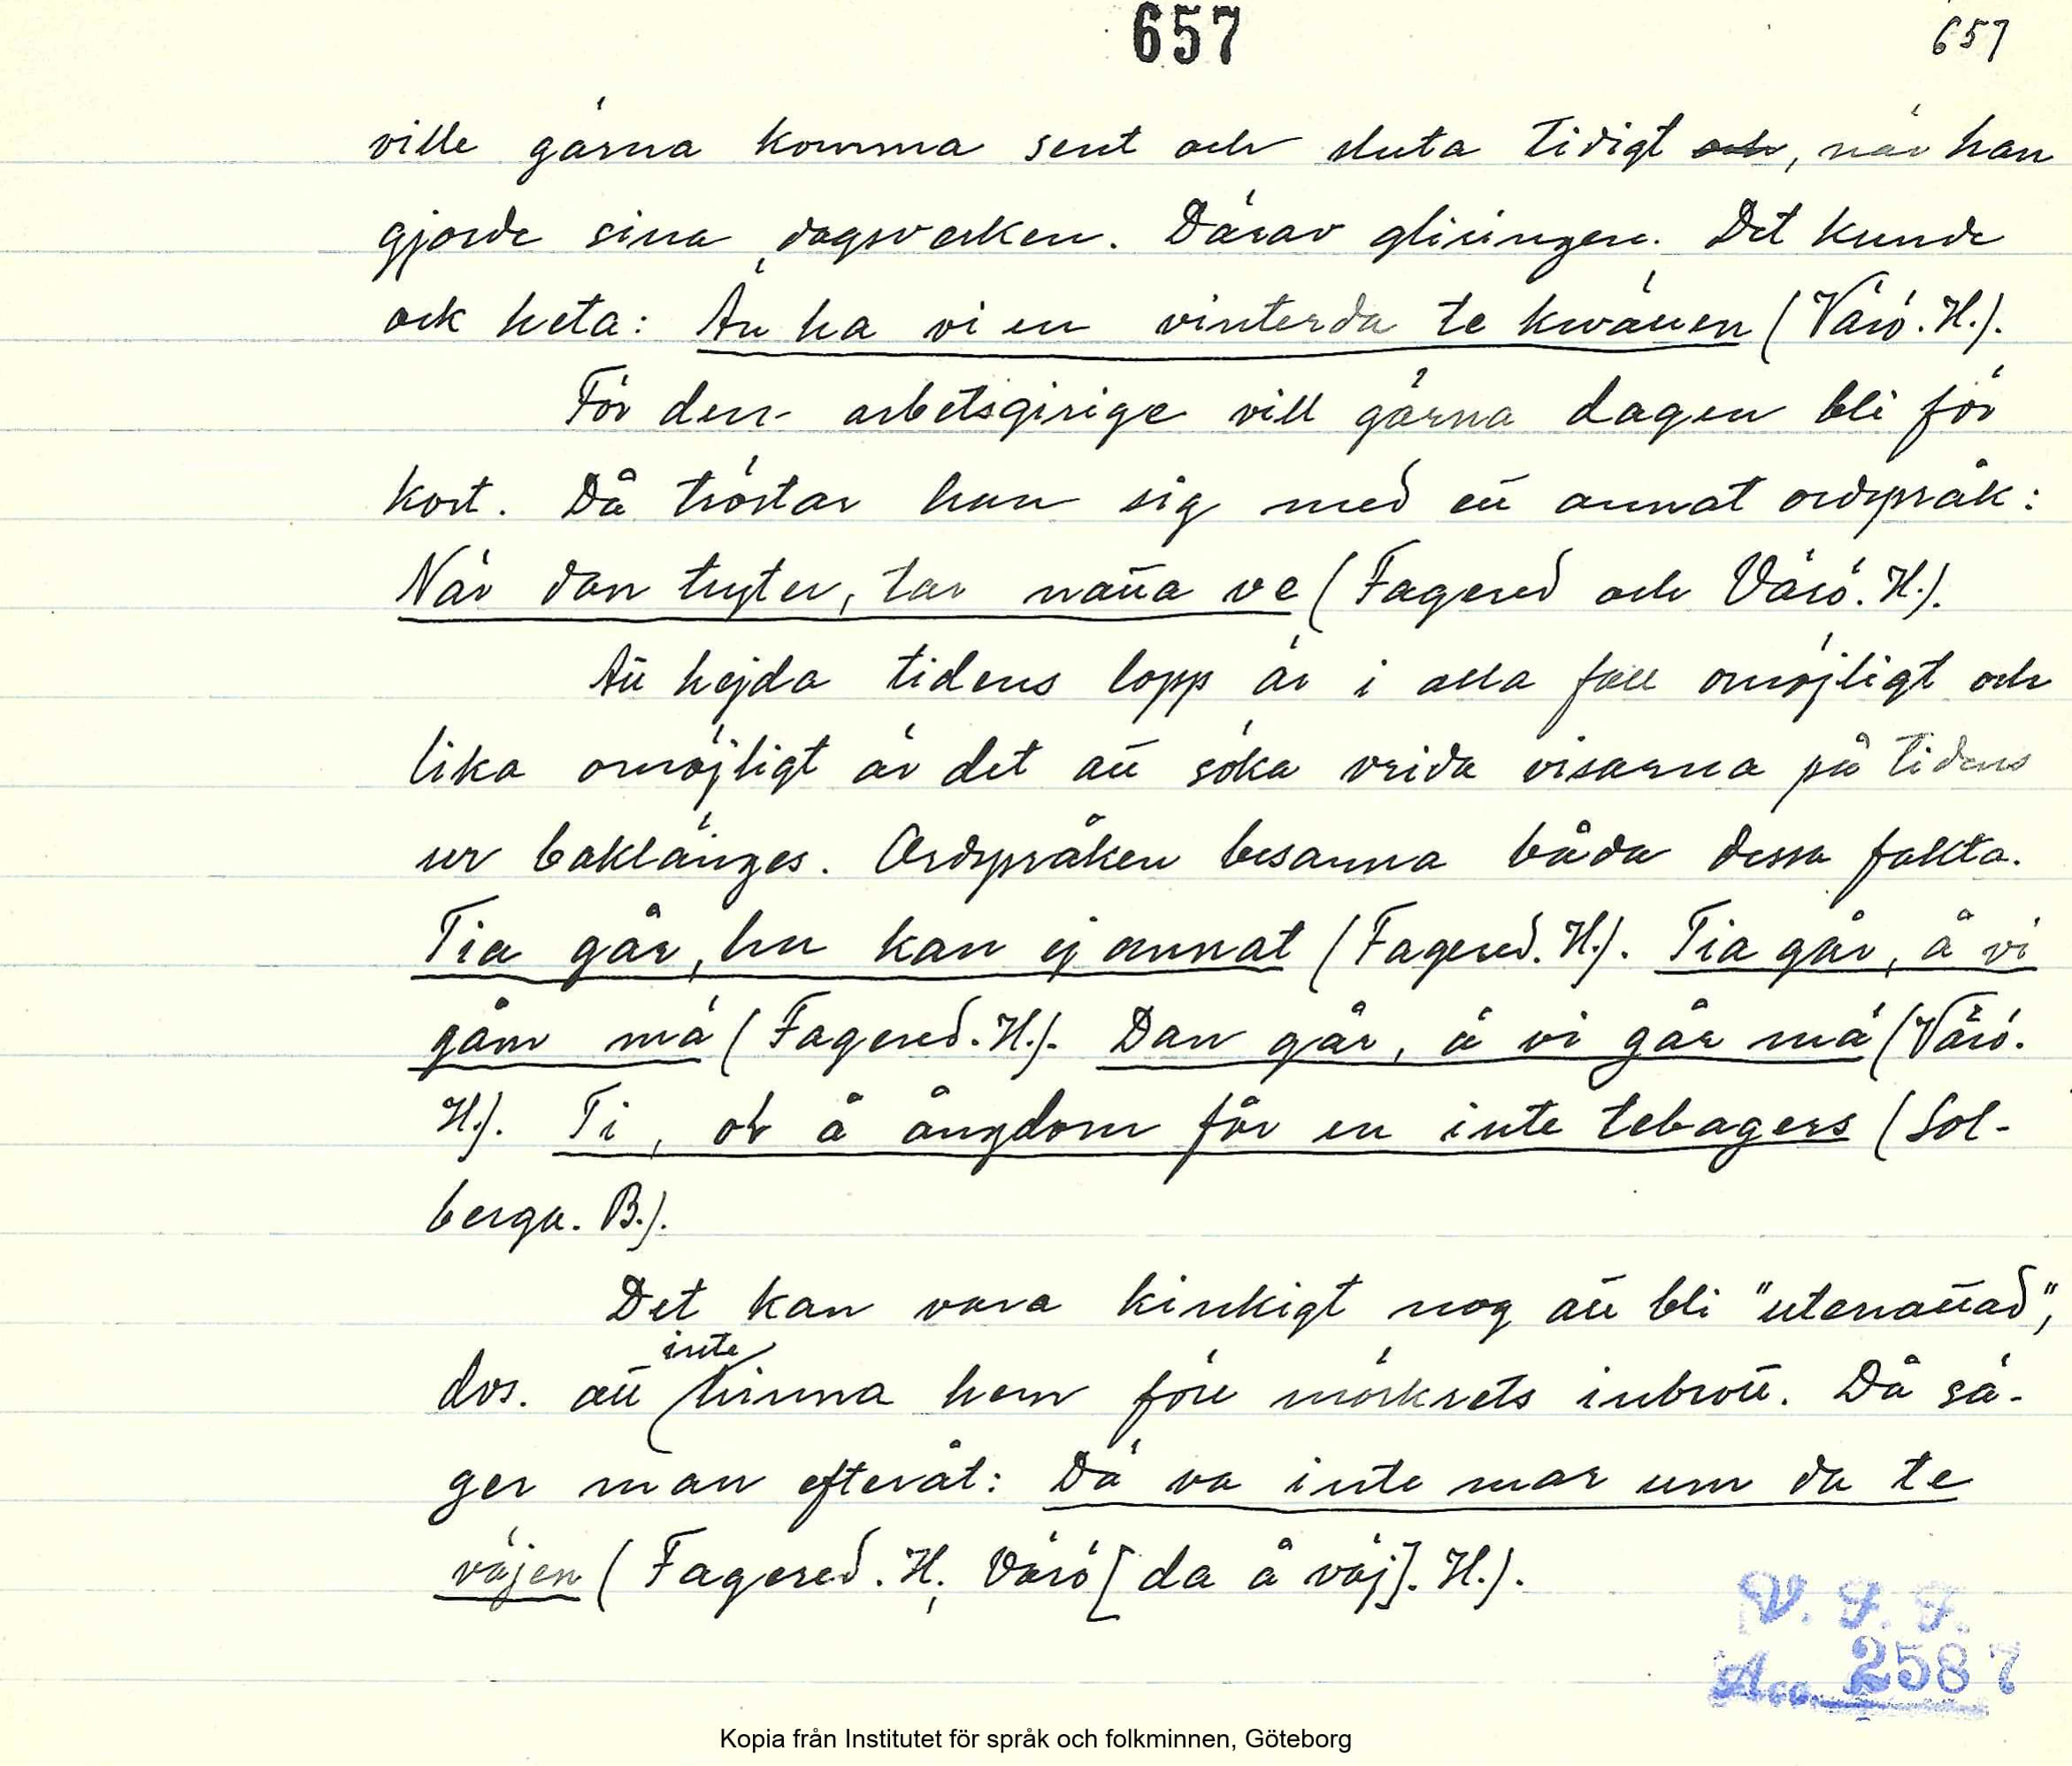 657
657
ville gärna komma sent och sluta tidigt och, när han
gjorde sina dagsverken. Därav glirningen. Det kunde
ock heta: Än ha vi en vinterda te kwällen (Värö. H.).
För den arbetsgirige vill gärna dagen bli för
kort. Då tröstar han sig med ett annat ordspråk:
När dan tryter, tar natta ve (Fagered och Värö. H.).
Att hejda tidens lopp är i alla fall omöjligt och
lika omöjligt är det att söka vrida visarna på tidens
ur baklänges. Ordspråken besanna båda dessa fakta.
Tia går, hu kan ej annat (Fagered. H.). Tia går, å vi
gåm mä (Fagered. H.). Dan går, å vi går mä (Värö.
H.). Ti, ol å ångdom får en inte tebagers (Sol-
berga. B.).
Det kan vara kinkigt nog att bli "utenattad",
dvs. att inte hinna hem före mörkrets inbrott. Då sä-
ger man efteråt: Dä va inte mar um da te
väjen (Fagered. H; Värö [da å väj]. H.).
V. F. F.
Acc. 2587
Kopia från Institutet för språk och folkminnen, Göteborg